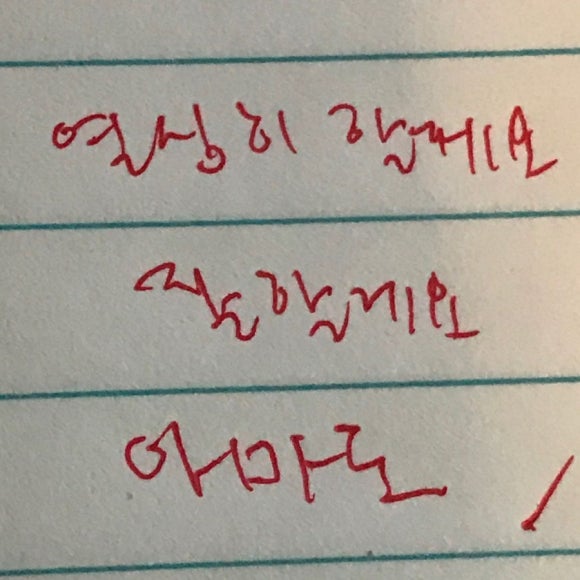 열심히 할게요
잘할게요
아마도